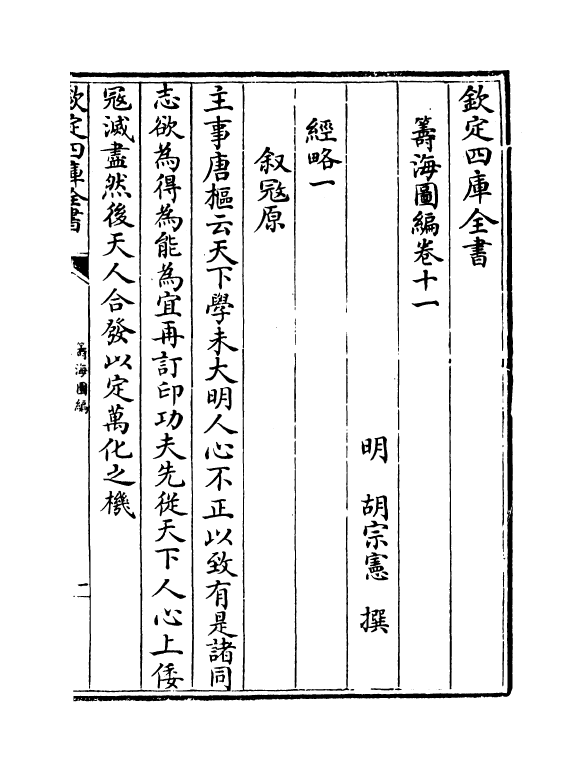 欽定四庫全書
籌海圖編卷十一
明　胡宗憲　撰
經略一
叙冦原
主事唐樞云天下學未大明人心不正以致有是諸同
志欲為得為能為宜再訂印功夫先從天下人心上倭
冦滅盡然後天人合發以定萬化之機
欽定四庫全書
籌海圖編